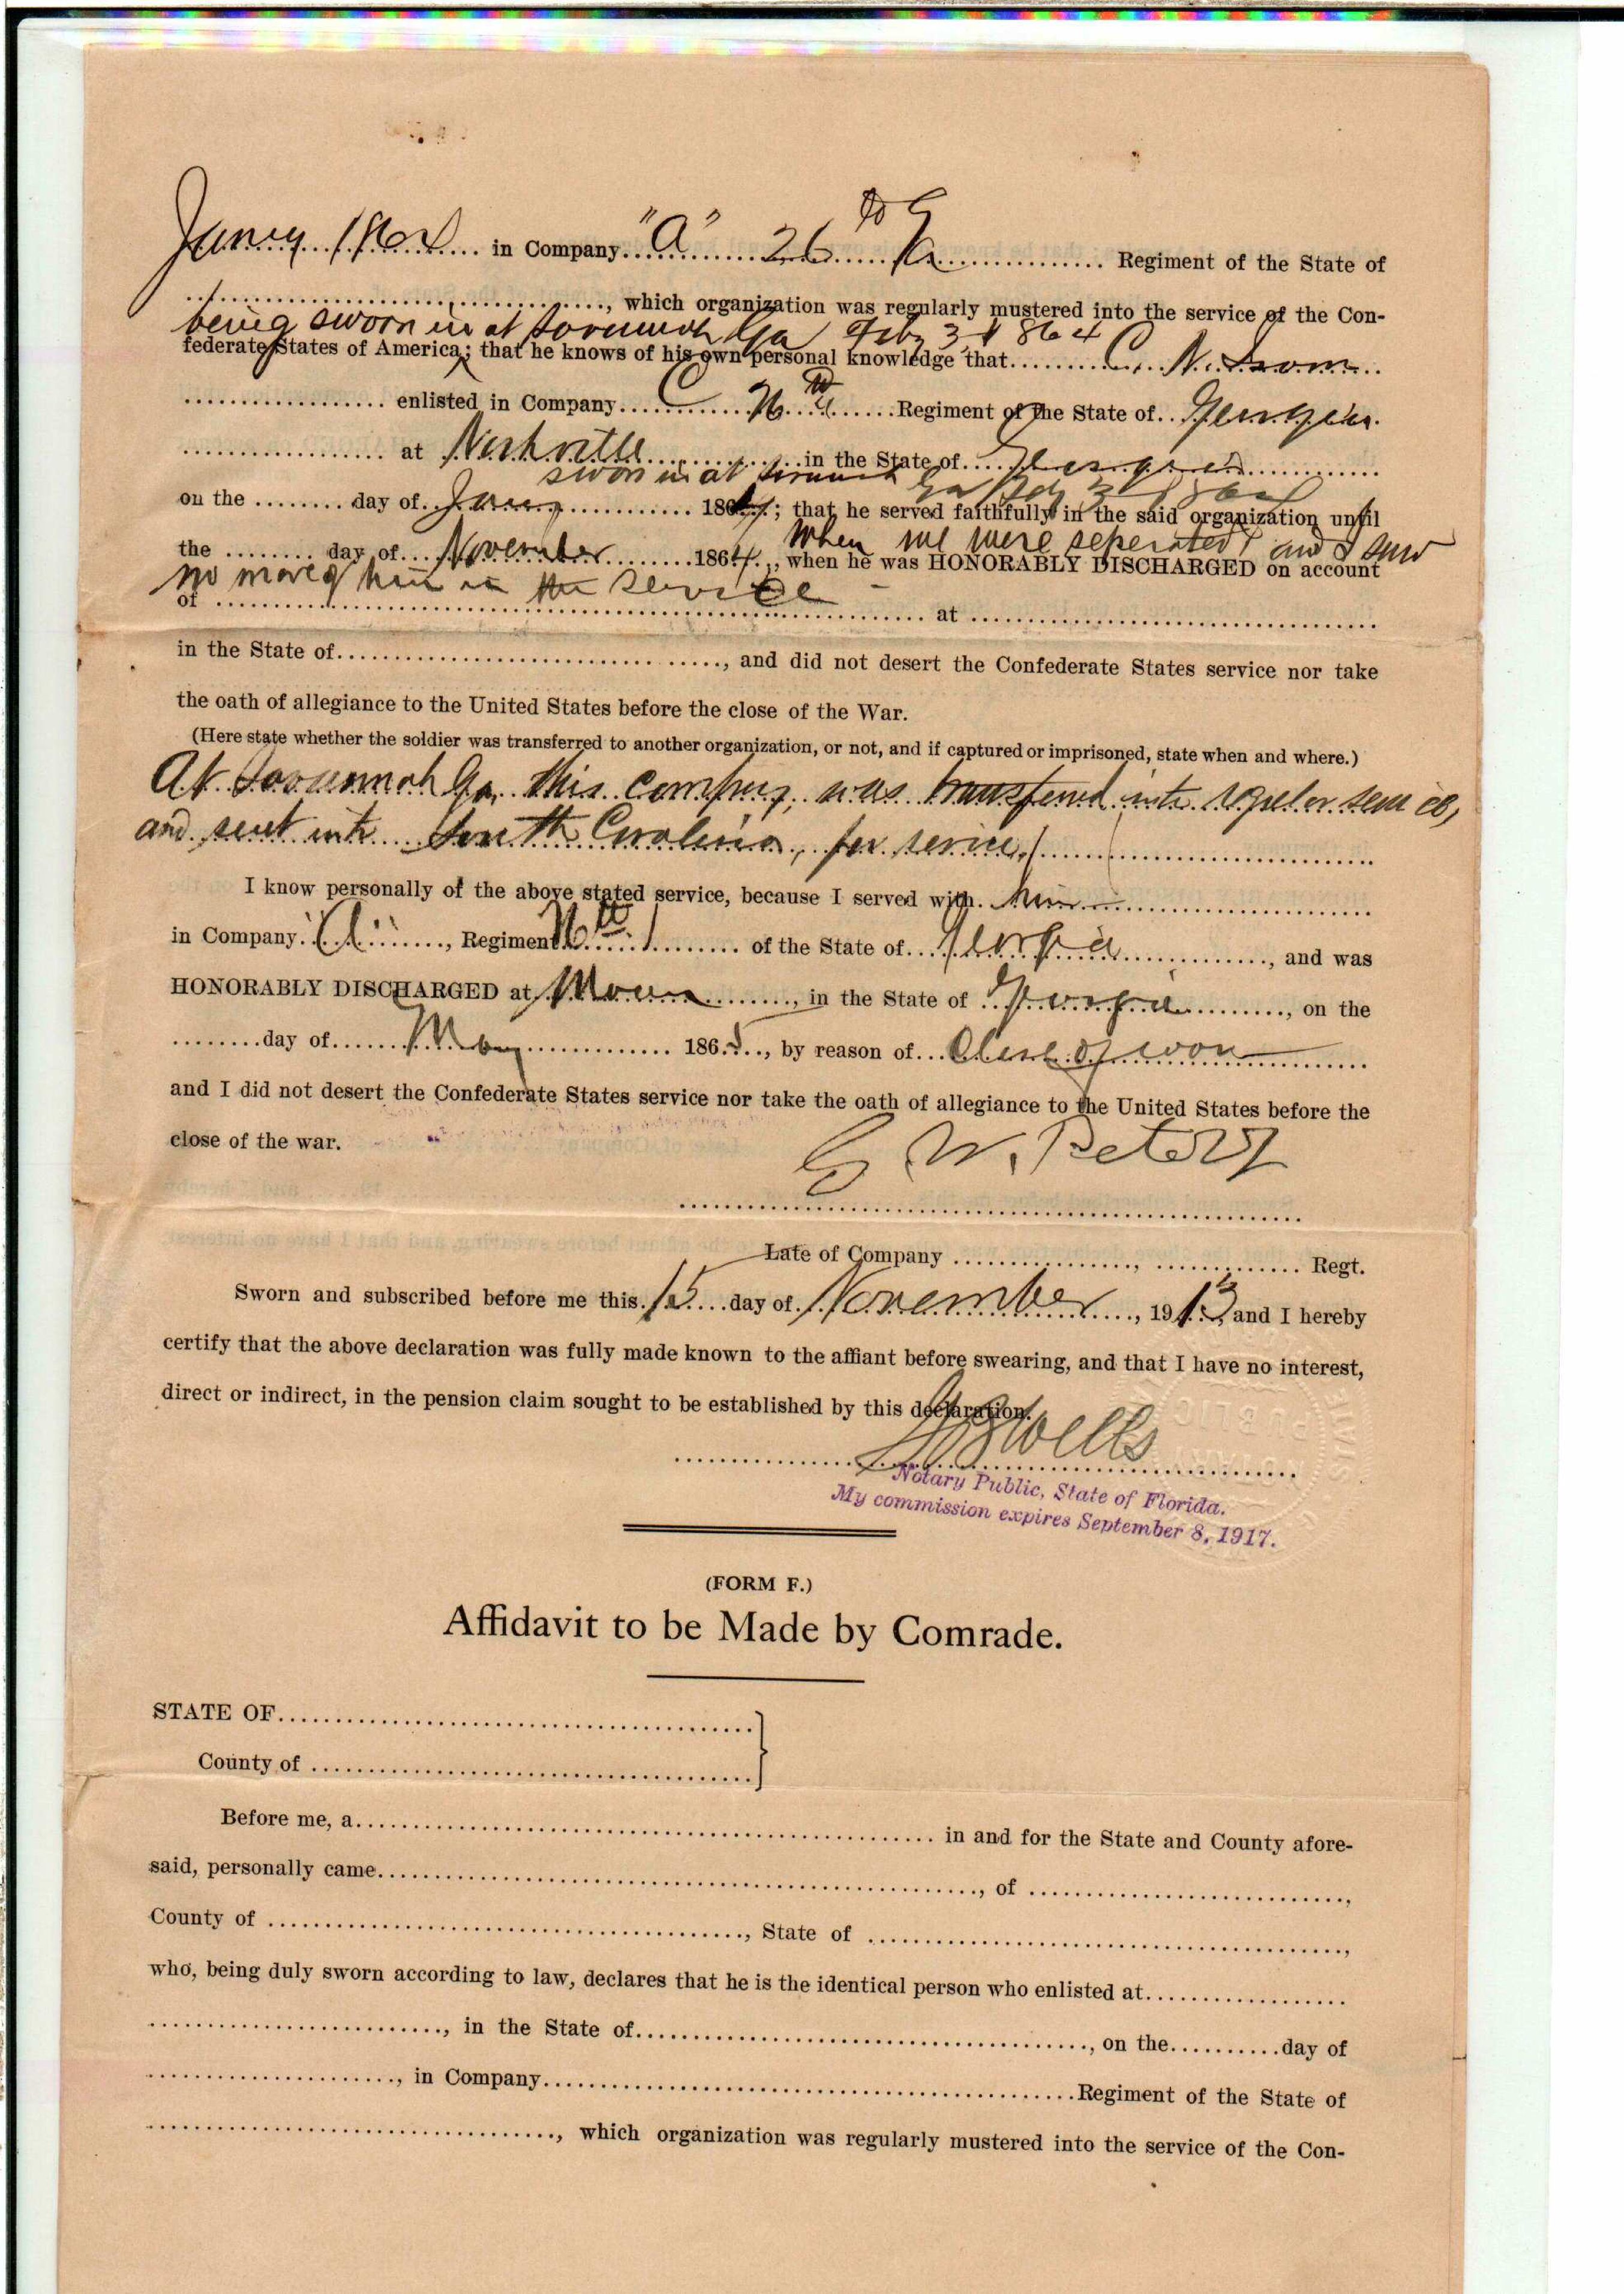 in Company "A" 26 to Ga Regiment of the State of
, which organization was regularly mustered into the service of the Con-
being sworn in at Savannah Ga Feby 3d 1864
federate States of America; that he knows of his own personal knowledge that C. N.
enlisted in Company Regiment of the State of Georgia
at Nashville in the State of Georgia
sworn in at Ga
on the day of Jany 1864; that he served faithfully in the said organization until
When we were seperated and I saw
the day of November 1864, when he was HONORABLY DISCHARGED on account
no more of him in the service
of at
in the State of , and did not desert the Confederate States service nor take
the oath of allegiance to the United States before the close of the War.
(Here state whether the soldier was transferred to another organization, or not, and if captured or imprisoned, state when and where.)
At Savannah Ga. this company, was transferred into regular service,
and sent into South Carolina, for service.
I know personally of the above stated service, because I served with him
in Company , Regiment of the State of Georgia , and was
HONORABLY DISCHARGED at , in the State of Georgia , on the
day of May 1865, by reason of Close of war
and I did not desert the Confederate States service nor take the oath of allegiance to the United States before the
close of the war.
G W. Peters
Late of Company , Regt.
Sworn and subscribed before me this 15 day of November, 1913, and I hereby
certify that the above declaration was fully made known to the affiant before swearing, and that I have no interest,
direct or indirect, in the pension claim sought to be established by this declaration.
Wells
Notary Public, State of Florida.
My commission expires September 8, 1917.
(FORM F.)
Affidavit to be Made by Comrade.
STATE OF
County of
Before me, a in and for the State and County afore-
said, personally came , of ,
County of , State of ,
who, being duly sworn according to law, declares that he is the identical person who enlisted at
, in the State of , on the day of
, in Company Regiment of the State of
, which organization was regularly mustered into the service of the Con-